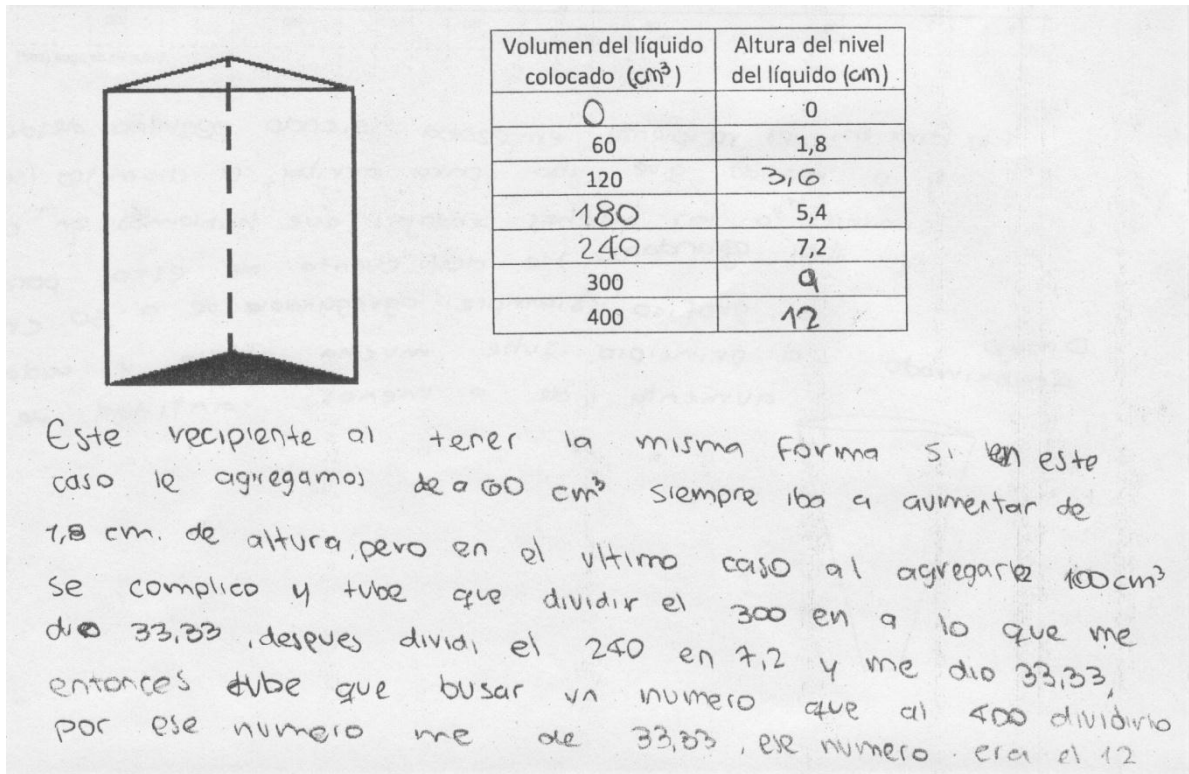 Volumen del líquido colocado (cm³) | Altura del nivel del líquido (cm)
0 | 0
60 | 1,8
120 | 3,6
180 | 5,4
240 | 7,2
300 | 9
400 | 12
Este recipiente al tener la misma forma si en este
caso le agregamos de a 60 cm³ siempre iba a aumentar de
1,8 cm. de altura, pero en el ultimo caso al agregarle 100 cm³
se complico y tube que dividir el 300 en 9 lo que me
dio 33,33, despues dividi el 240 en 7,2 y me dio 33,33,
entonces tube que busar un numero que al 400 dividirlo
por ese numero me de 33,33, ese numero era el 12